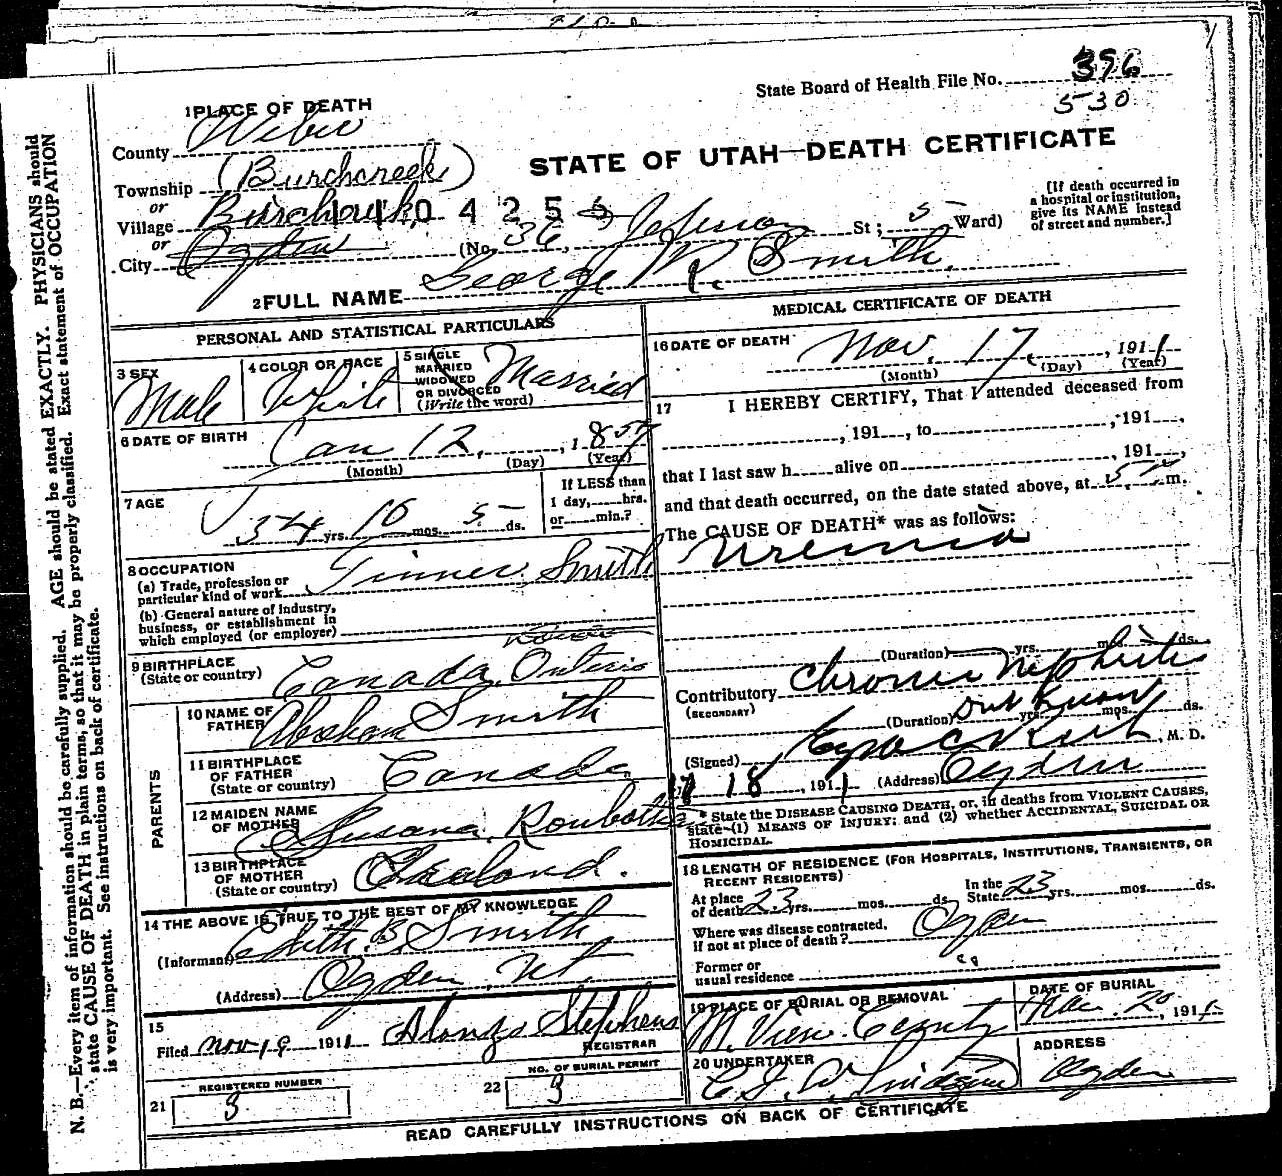 State Board of Health File No. 396
530
1 PLACE OF DEATH
County Weber
STATE OF UTAH—DEATH CERTIFICATE
Township (Burchcreek)
or
Village Burchcreek 1 1 0 4 2 5 6
or
City Ogden (No. 36, Jefferson St; 5 Ward)
[If death occurred in
a hospital or institution,
give its NAME instead
of street and number.]
2 FULL NAME George R. Smith.
PERSONAL AND STATISTICAL PARTICULARS
3 SEX
Male
4 COLOR OR RACE
White
5 SINGLE
MARRIED
WIDOWED
OR DIVORCED
(Write the word)
Married
6 DATE OF BIRTH
Jan 12, , 1857
(Month) (Day) (Year)
7 AGE
54 yrs. 10 mos. 5 ds.
If LESS than
1 day, hrs.
or min.?
8 OCCUPATION
(a) Trade, profession or
particular kind of work Tinner Smith
(b) General nature of Industry,
business, or establishment in
which employed (or employer)
9 BIRTHPLACE
(State or country) Canada, Onterio
PARENTS
10 NAME OF
FATHER Abraham Smith
11 BIRTHPLACE
OF FATHER
(State or country) Canada
12 MAIDEN NAME
OF MOTHER Susana
13 BIRTHPLACE
OF MOTHER
(State or country)
14 THE ABOVE IS TRUE TO THE BEST OF MY KNOWLEDGE
(Informant) Edith B. Smith
(Address) Ogden, Ut.
15
Filed Nov 19 1911 Alonzo Stephens
REGISTRAR
21 REGISTERED NUMBER
3
22 NO. OF BURIAL PERMIT
3
MEDICAL CERTIFICATE OF DEATH
16 DATE OF DEATH
Nov. 17, , 1911
(Month) (Day) (Year)
17 I HEREBY CERTIFY, That I attended deceased from
, 191 , to , 191 ,
that I last saw h alive on , 191 ,
and that death occurred, on the date stated above, at 5 m.
The CAUSE OF DEATH* was as follows:
Uremia
(Duration) yrs. mos. ds.
Contributory Chronic Nephritis
(SECONDARY)
(Duration) Don't Know yrs. mos. ds.
(Signed) , M. D.
11 18, 1911 (Address) Ogden
* State the DISEASE CAUSING DEATH, or, in deaths from VIOLENT CAUSES,
state (1) MEANS OF INJURY; and (2) whether ACCIDENTAL, SUICIDAL OR
HOMICIDAL.
18 LENGTH OF RESIDENCE (FOR HOSPITALS, INSTITUTIONS, TRANSIENTS, OR
RECENT RESIDENTS)
At place
of death 23 yrs. mos. ds.
In the
State 23 yrs. mos. ds.
Where was disease contracted,
if not at place of death? Ogden
Former or
usual residence "
19 PLACE OF BURIAL OR REMOVAL
M. View Cemty
DATE OF BURIAL
Nov. 20, 1911
20 UNDERTAKER
ADDRESS
Ogden
READ CAREFULLY INSTRUCTIONS ON BACK OF CERTIFICATE
N. B.—Every item of information should be carefully supplied. AGE should be stated EXACTLY. PHYSICIANS should
state CAUSE OF DEATH in plain terms, so that it may be properly classified. Exact statement of OCCUPATION
is very important. See instructions on back of certificate.